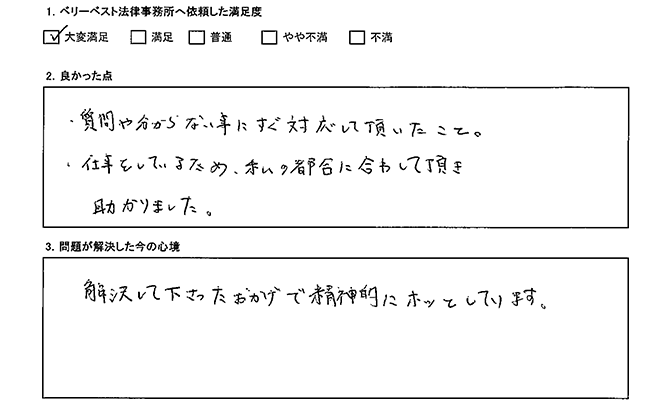 1．ベリーベスト法律事務所へ依頼した満足度
☑ 大変満足 □ 満足 □ 普通 □ やや不満 □ 不満
2．良かった点
・質問や分からない事にすぐ対応して頂いたこと。
・仕事をしているため、私の都合に合わして頂き
助かりました。
3．問題が解決した今の心境
解決して下さったおかげで精神的にホッとしています。